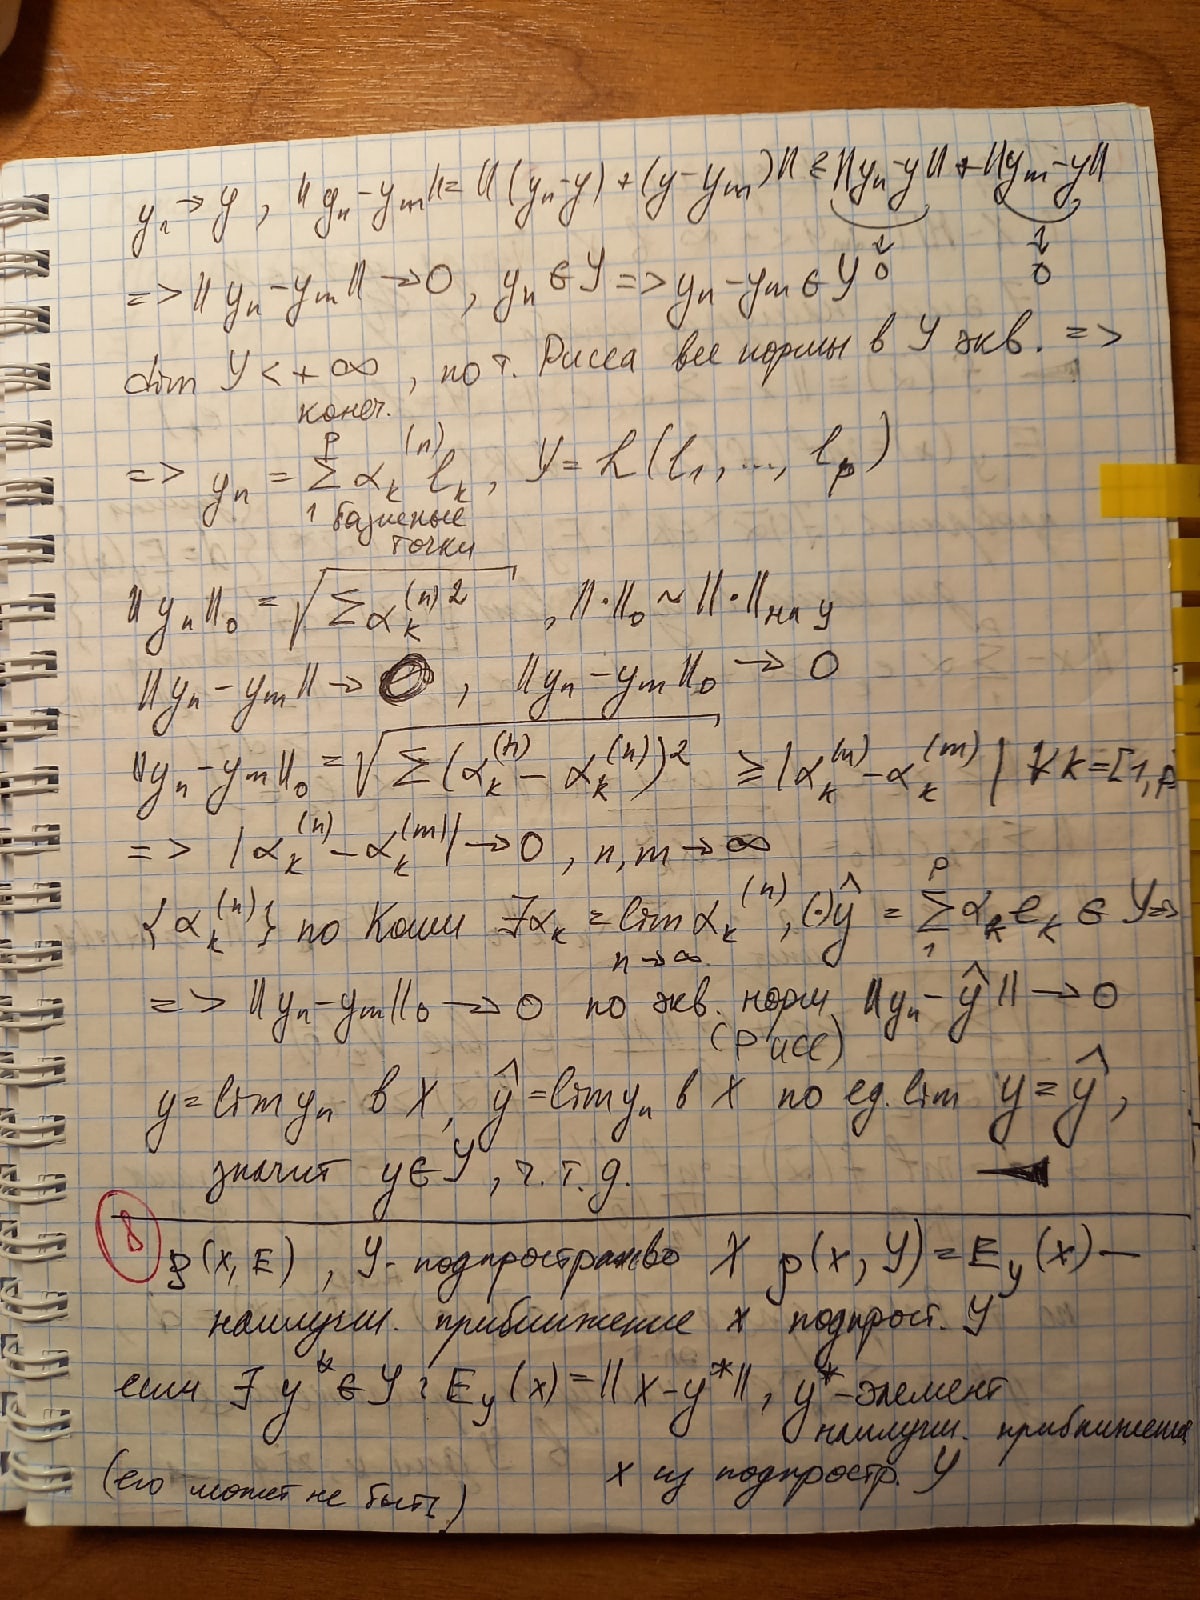 yₙ → y, ‖yₙ-yₘ‖ = ‖(yₙ-y)+(y-yₘ)‖ ≤ ‖yₙ-y‖ + ‖yₘ-y‖
↓ ↓
0 0
=> ‖yₙ-yₘ‖ → 0, yₙ ∈ Y => yₙ-yₘ ∈ Y
dim Y < +∞, по т. Рисса все нормы в Y экв. =>
конеч.
=> yₙ = Σ₁ᵖ αₖ⁽ⁿ⁾ lₖ, Y = L(l₁, ..., lₚ)
базисные
точки
‖yₙ‖₀ = √(Σαₖ⁽ⁿ⁾²), ‖·‖₀ ~ ‖·‖ на y
‖yₙ-yₘ‖ → 0, ‖yₙ-yₘ‖₀ → 0
‖yₙ-yₘ‖₀ = √(Σ(αₖ⁽ⁿ⁾ - αₖ⁽ⁿ⁾)²) ≥ |αₖ⁽ⁿ⁾-αₖ⁽ᵐ⁾| ∀k=[1,p
=> |αₖ⁽ⁿ⁾-αₖ⁽ᵐ⁾| → 0, n,m → ∞
{αₖ⁽ⁿ⁾} по Коши ∃αₖ = lim αₖ⁽ⁿ⁾, (·)ŷ = Σ₁ᵖ αₖeₖ ∈ Y =>
n→∞
=> ‖yₙ-yₘ‖₀ → 0 по экв. норм. ‖yₙ-ŷ‖ → 0
(Рисс)
y = lim yₙ в X, ŷ = lim yₙ в X по ед. lim y = ŷ,
значит y ∈ Y, ч.т.д.
8
ρ(x,E), Y- подпространство X ρ(x,Y) = E_y(x) —
наилучш. приближение x подпрост. Y
если ∃ y* ∈ Y: E_y(x) = ‖x-y*‖, y* - элемент
наилучш. приближения
x из подпростр. Y
(его может не быть)